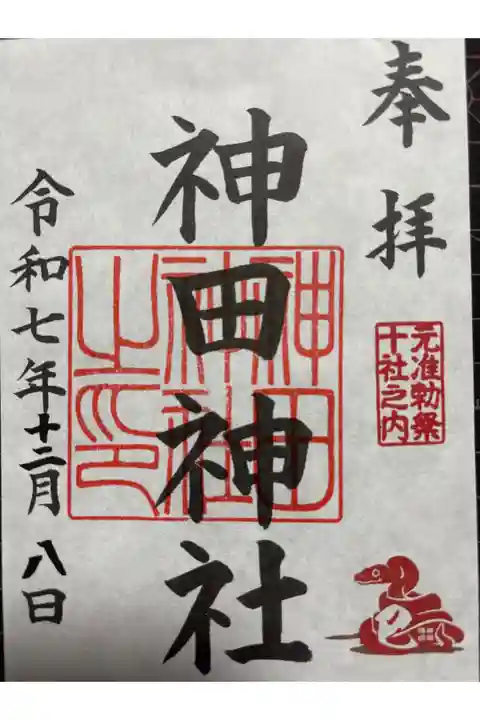 奉拝
元准勅祭
十社之内
巳
神田神社
神田
神社
之印
令和七年十二月八日